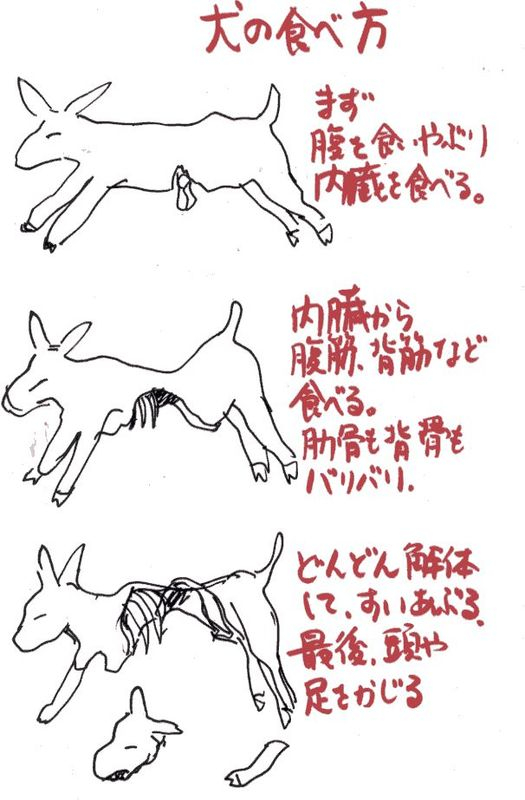 犬の食べ方
まず
腹を食いやぶり
内蔵を食べる。
内臓から
腹筋、背筋など
食べる。
肋骨も背骨も
バリバリ.
どんどん解体
して、すいあぶる、
最後、頭や
足をかじる